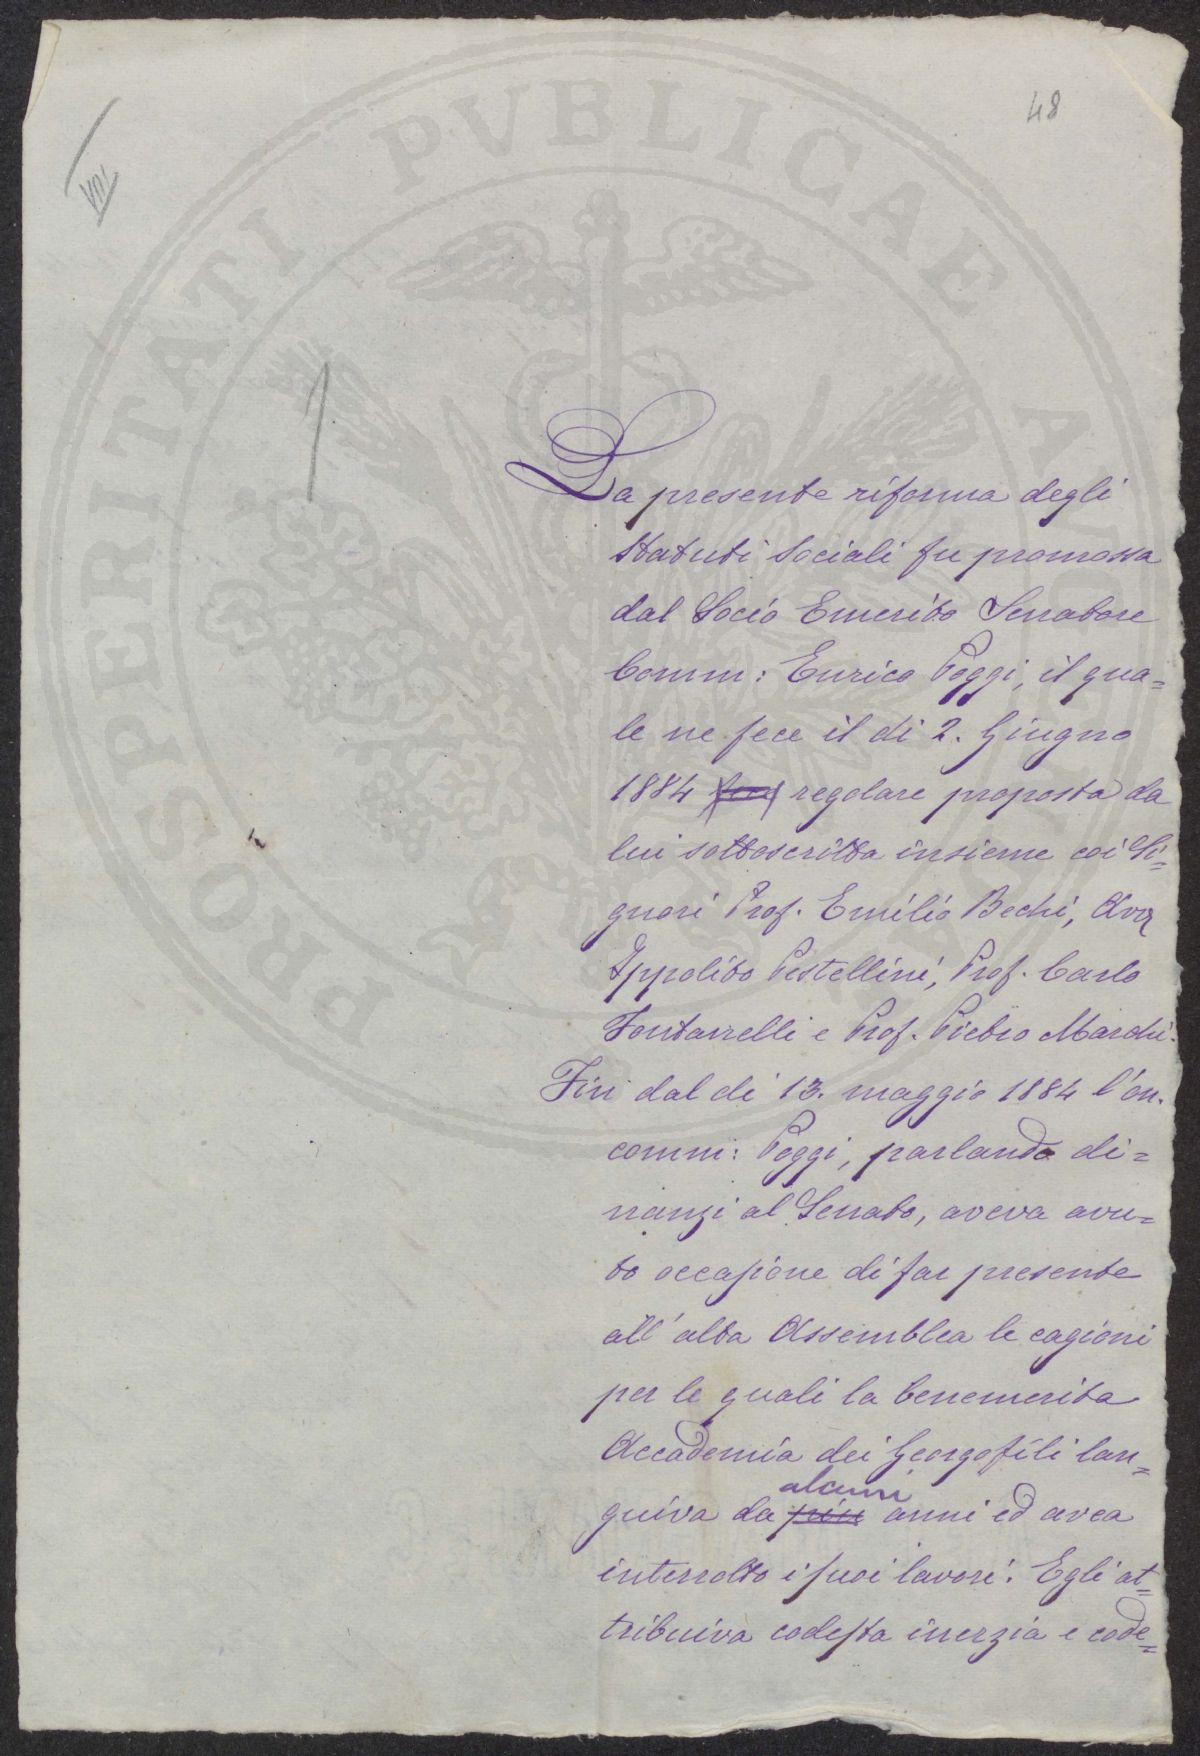 48
VIII
PROSPERITATI PVBLICAE AVGENDAE
La presente riforma degli
Statuti Sociali fu promossa
dal Socio Emerito Senatore
Comm: Enrico Poggi, il qua=
le ne fece il dì 2. Giugno
1884 regolare proposta da
lui sottoscritta insieme coi Si=
gnori Prof. Emilio Bechi, Avv
Ippolito Pestellini, Prof. Carlo
Fontanelli e Prof. Pietro Marchi.
Fin dal dì 13. maggio 1884 l'on.
comm: Poggi, parlando di=
nanzi al Senato, aveva avu=
to occasione di far presente
all'alta Assemblea le cagioni
per le quali la benemerita
Accademia dei Georgofili lan=
alcuni
guiva da più anni ed avea
interrotto i suoi lavori. Egli at=
tribuiva codesta inerzia e code=